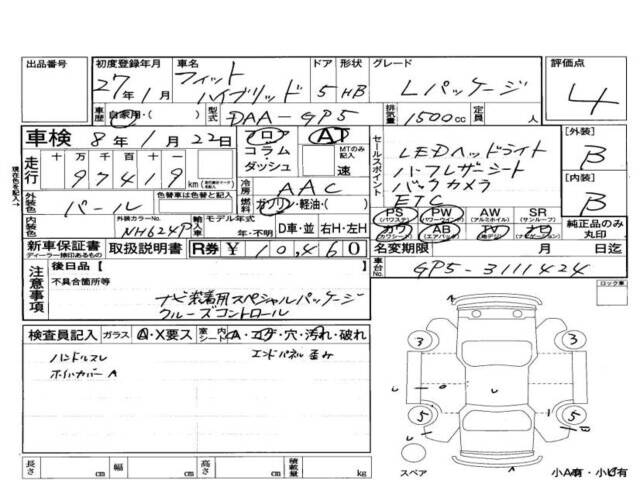 出品番号 初度登録年月 車名 ドア 形状 グレード 評価点
27年1月 フィットハイブリッド 5 HB Lパッケージ 4
車歴 自家用・( ) 型式 DAA-GP5 排気量 1500cc 定員 人
車検 8年1月22日 フロア AT
コラム MTのみ記入
ダッシュ 速
セールスポイント
LEDヘッドライト
ハーフレザーシート
バックカメラ
ETC
[外装] B
[内装] B
現在色を記入→
走行 十 万 千 百 十 一
97419 km
冷房 AAC
外装色 パール
燃料 ガソリン・軽油・( )
内装色 外装カラーNo. NH624P 輸入車 モデル年式 年・不明 D車・並 右H・左H
PS (パワステ) PW (パワーウインドウ) AW (アルミホイル) SR (サンルーフ)
カワ (カワシート) AB (エアバック)
純正品のみ丸印
新車保証書 ディーラー捺印あるもの 取扱説明書 R券 ¥10,460
名変期限 月 日迄
車台No. GP5-3111424
注意事項
後日品 [ ]
不具合箇所等
ナビ装着用スペシャルパッケージ
クルーズコントロール
ロック車
検査員記入 ガラス A・X要ス 室内 シート A・コゲ・穴・汚れ・破れ
ハンドルスレ エンドパネル歪み
ホイルカバーA
A
3 3
U U
5 5
A
スペア 小A有・小U有
長さ cm 幅 cm 高さ cm 積載量 kg